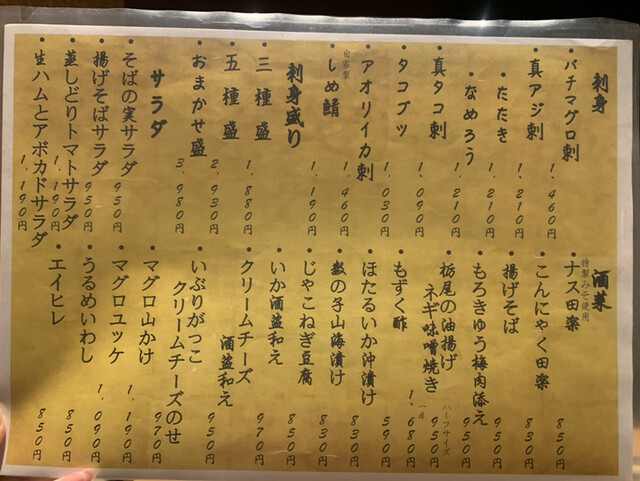 刺身
・バチマグロ刺 1、460円
・真アジ刺 1、210円
・たたき 1、210円
・なめろう 1、210円
・真タコ刺 1、090円
・タコブツ 1、030円
・アオリイカ刺 1、460円
自家製
・しめ鯖 1、190円
刺身盛り
・三種盛 1、880円
・五種盛 2、930円
・おまかせ盛 3、980円
サラダ
・そばの実サラダ 950円
・揚げそばサラダ 950円
・蒸しどりトマトサラダ 1、190円
・生ハムとアボカドサラダ 1、190円
酒菜
特製みそ使用
・ナス田楽 850円
・こんにゃく田楽 830円
・揚げそば 950円
・もろきゅう梅肉添え 950円
・栃尾の油揚げ
ネギ味噌焼き
ハーフサイズ 950円
1、680円
・もずく酢 590円
・ほたるいか沖漬け 830円
・数の子山海漬け 830円
・じゃこねぎ豆腐 850円
・いか酒盗和え 970円
・クリームチーズ
酒盗和え 950円
・いぶりがっこ
クリームチーズのせ 970円
・マグロ山かけ 1、190円
・マグロユッケ 1、090円
・うるめいわし 850円
・エイヒレ 850円